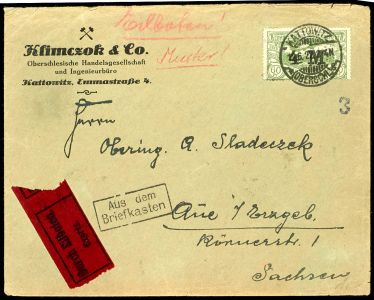 Eilboten!
Muster!
Klimczok & Co.
Oberschlesische Handelsgesellschaft
und Ingenieurbüro
Kattowitz, Emmastraße 4.
KATTOWITZ
4 M
3
Herrn
Obering. A. Sladeczek
Aus dem
Briefkasten
Aue i/ Erzgeb.
Durch Eilboten
Körnerstr. 1
Sachsen